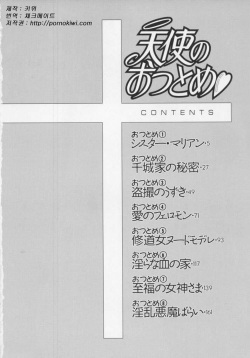 제작 : 키위
번역 : 체크메이트
저작권 : http://pornokiwi.com
天使の
おつとめ♥
CONTENTS
おつとめ①
シスター・マリアン・5
おつとめ②
千城家の秘密・27
おつとめ③
盗撮のうずき・49
おつとめ④
愛のフェロモン・71
おつとめ⑤
修道女ヌードモデル・93
おつとめ⑥
淫らな血の家・117
おつとめ⑦
至福の女神さま・139
おつとめ⑧
淫乱悪魔ばらい・161